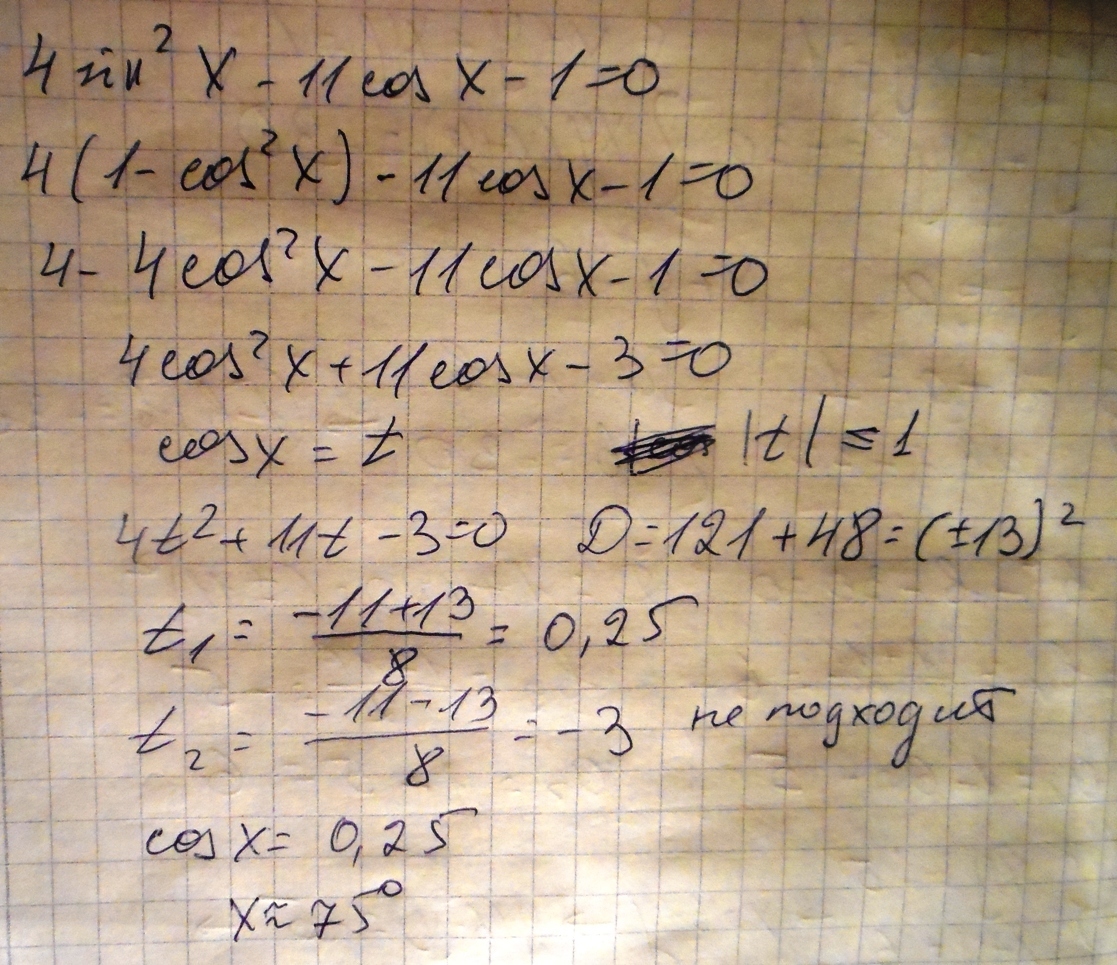 4 sin² x - 11 cos x - 1 = 0
4(1 - cos² x) - 11 cos x - 1 = 0
4 - 4 cos² x - 11 cos x - 1 = 0
4 cos² x + 11 cos x - 3 = 0
cos x = t |t| ≤ 1
4t² + 11t - 3 = 0 D = 121 + 48 = (±13)²
t₁ = (-11+13)/8 = 0,25
t₂ = (-11-13)/8 = -3 не подходит
cos x = 0,25
x ≈ 75°